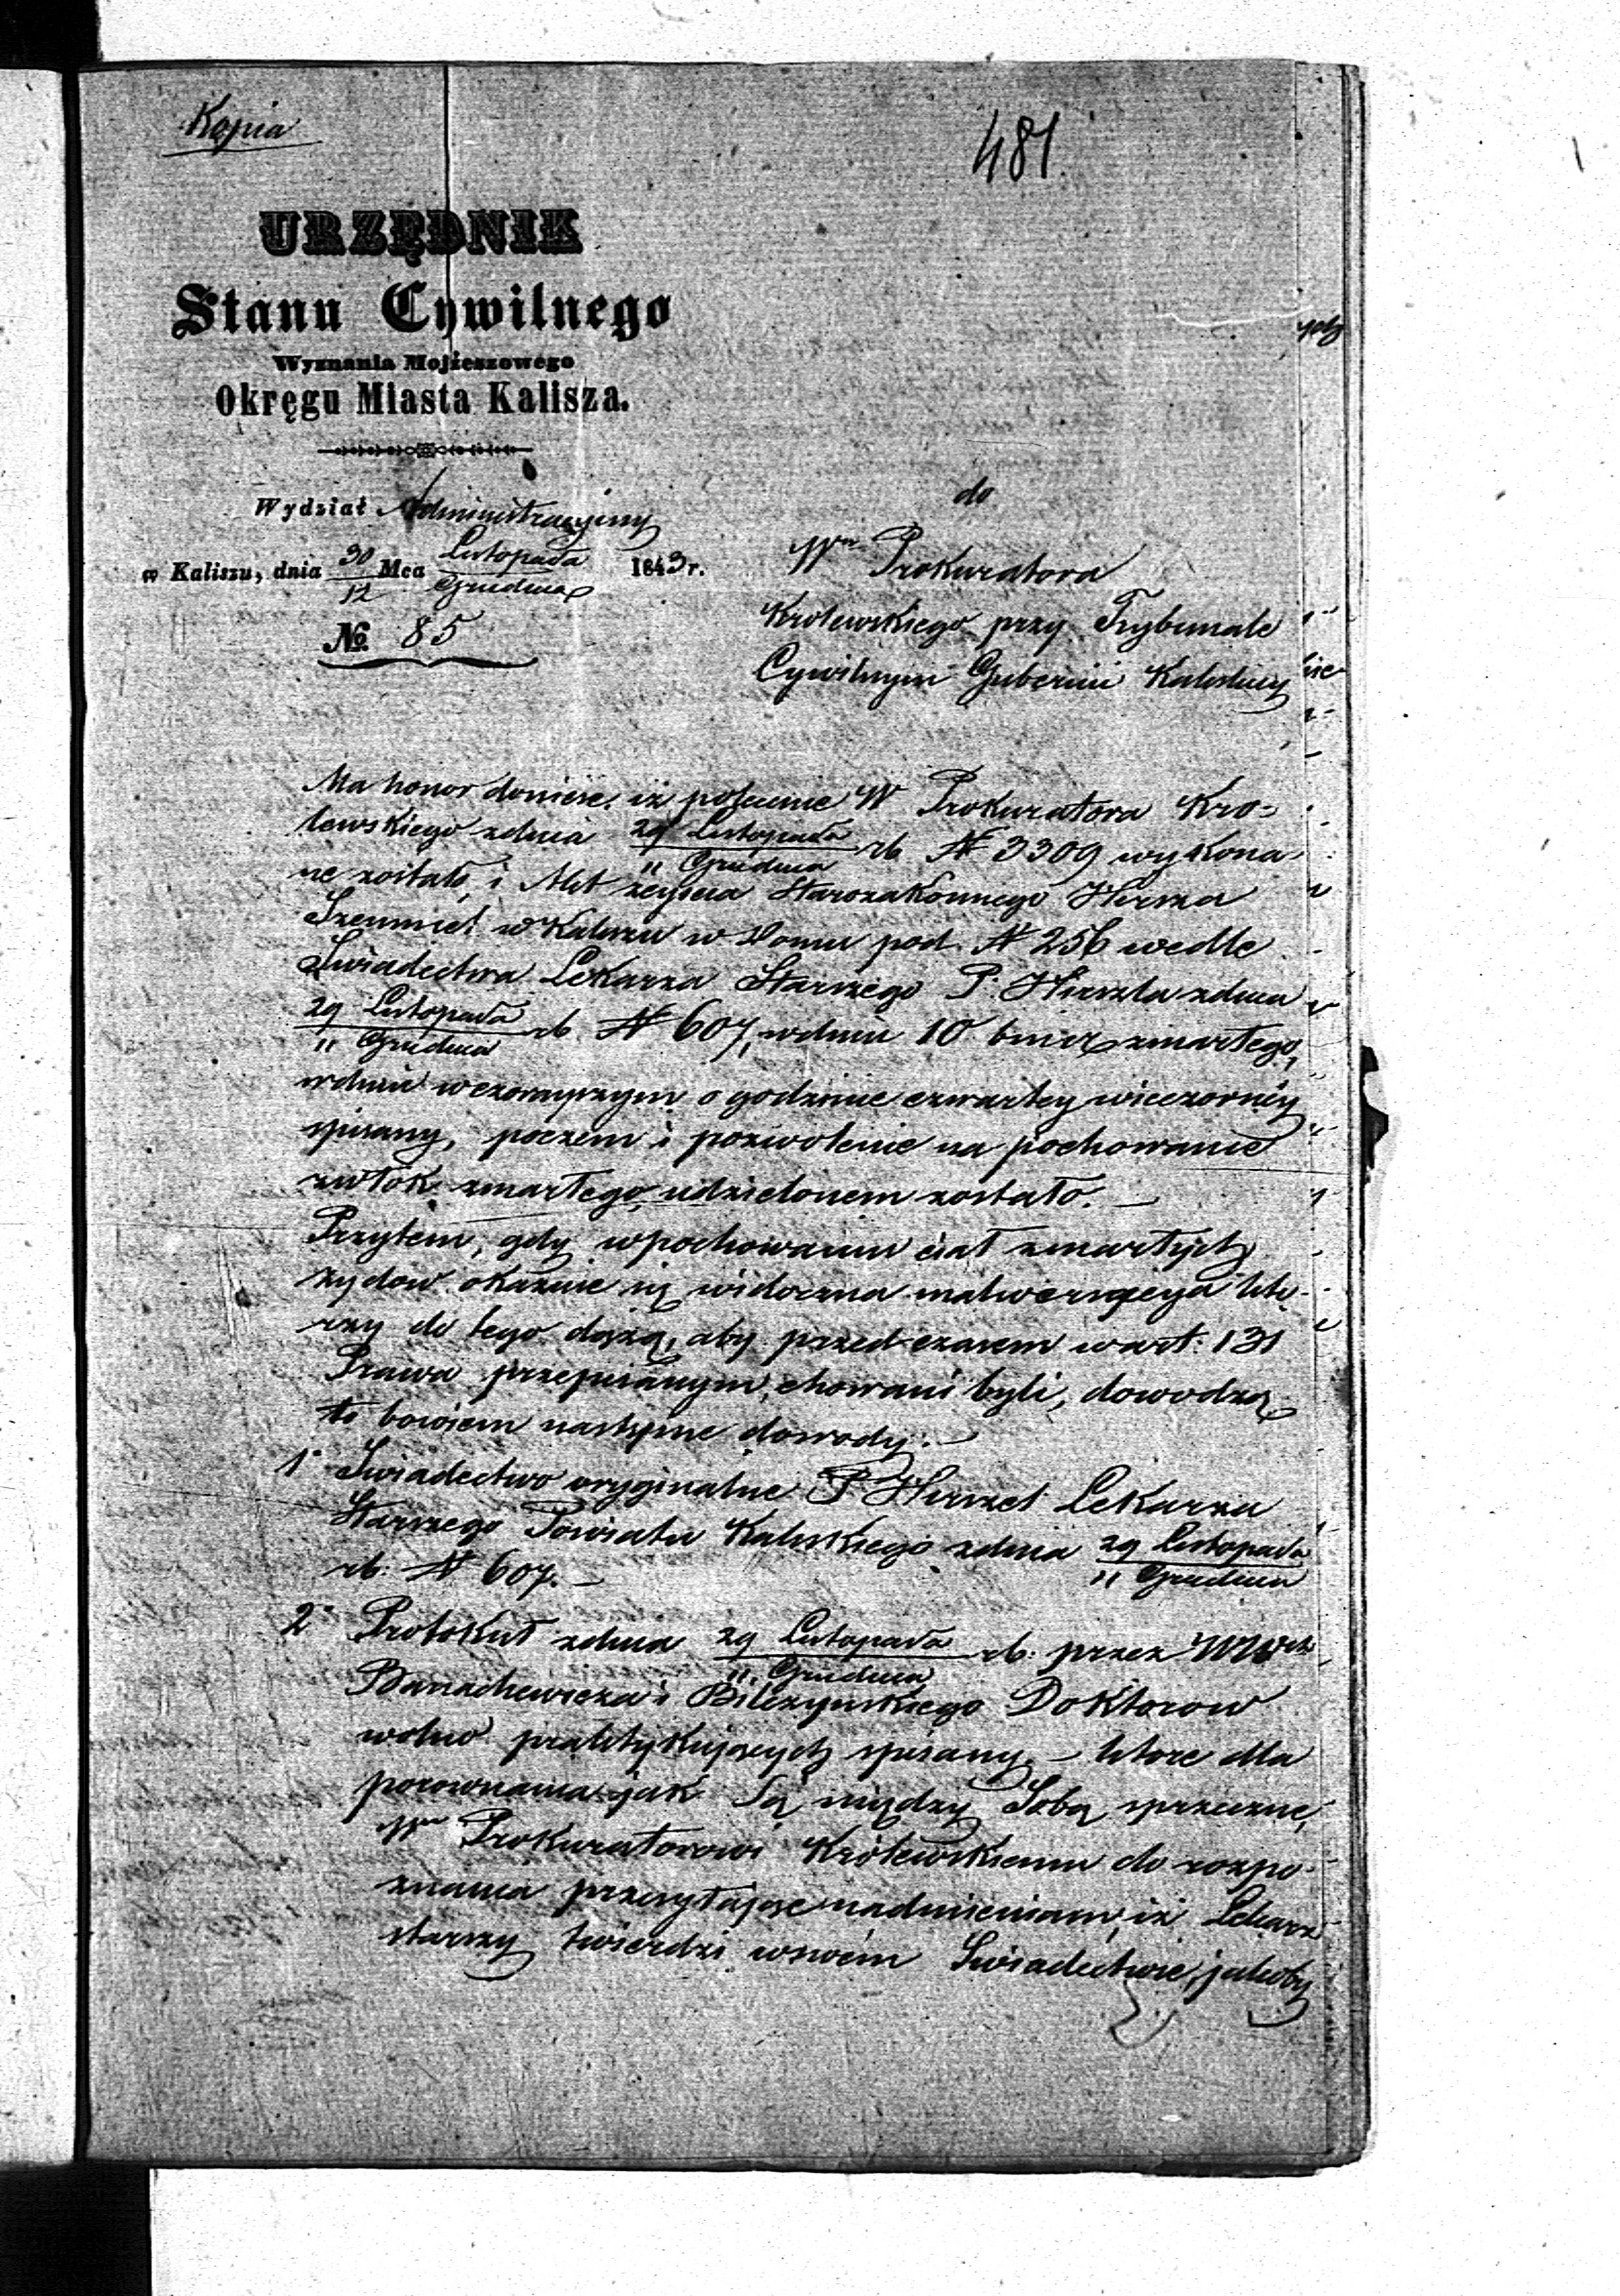 Kopia
481.
URZĘDNIK
Stanu Cywilnego
Wyznania Mojżeszowego
Okręgu Miasta Kalisza.
Wydział Administracyjny
w Kaliszu, dnia 30/12 Mca Listopada/Grudnia 1843 r.
№ 85
do
Wgo Prokuratora
Krolewskiego przy Trybunale
Cywilnym Gubernii Kaliskiey
Ma honor donieść, iż polecenie W Prokuratora Kro-
lewskiego z dnia 29 Listopada/11 Grudnia rb № 3309 wykona
ne zostało, i Akt zeyscia Starozakonnego Hersza
Szenmiel w Kaliszu w Domu pod № 256 wedle
Swiadectwa Lekarza Starszego P. Hirszla z dnia
29 Listopada/11 Grudnia rb. № 607, w dniu 10 bm i r zmartego,
w dniu wczorayszym o godzinie czwartey wieczorney
spisany, poczem i pozwolenie na pochowanie
zwłok zmarłego udzielonem zostało. —
Przytem, gdy w pochowaniu ciał zmarłych
żydow okazuie się widoczna malwersacya któ-
rzy do tego dążą, aby przed czasem w art: 131
Prawa przepisanym, chowani byli, dowodzą
to bowiem następne dowody: —
1° Swiadectwo oryginalne P Hirszel Lekarza
Starszego Powiatu Kaliskiego z dnia 29 Listopada/11 Grudnia
rb: № 607. —
2° Protokuł z dnia 29 Listopada/11 Grudnia rb: przez
Banachewicza i Bilczynskiego Doktorow
wolno praktykuiących spisany, — ktore dla
porownania jak są między Sobą sprzeczne,
Wmu Prokuratorowi Królewskiemu do rozpo-
znania przesyłaiąc nadmieniam, iż Lekarz
starszy twierdzi w swém Swiadectwie, jakoby